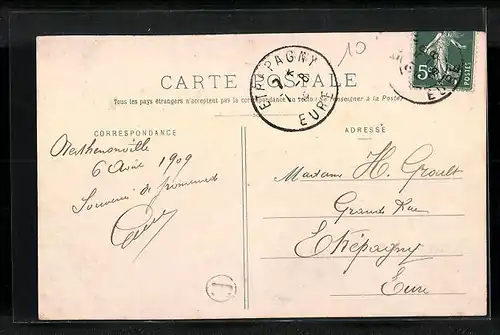 10
ETRÉPAGNY
EURE
5c
POSTES
EURE
CARTE POSTALE
Tous les pays étrangers n'acceptent pas la correspondance au recto (Se renseigner à la Poste)
CORRESPONDANCE
ADRESSE
6 Août 1909
Souvenir de promenade
Madame H. Groult
Grande Rue
Etrépagny
Eure